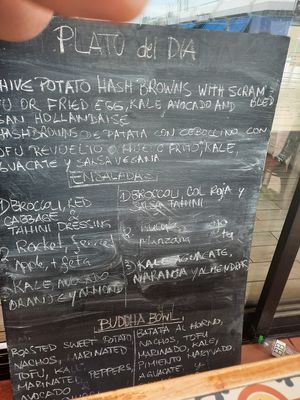 PLATO del DIA
HIVE POTATO HASH BROWNS WITH SCRAM
FU OR FRIED EGG, KALE, AVOCADO AND
GAN HOLLANDAISE
HASHBROWNS DE PATATA CON CEBOLLINO CON
OFU REVUELTO O HUEVO FRITO, KALE,
GUACATE y SALSA VEGANA
ENSALADAS
1) BROCCOLI, RED
CABBAGE &
TAHINI DRESSING
2. Rocket,
Apple, + feta
3) KALE, AVOCADO
ORANJE y ALMOND
1) BROCCOLI, COL ROJA y
SALSA TAHINI
2.
Manzana
3) KALE, AGUACATE,
NARANJA y ALMENDRA
BUDDHA BOWL
ROASTED SWEET POTATO
NACHOS, MARINATED
TOFU, KALE
MARINATED PEPPERS,
AVOCADO
BATATA AL HORNO,
NACHOS, TOFU
MARINADO, KALE,
PIMIENTO MARINADO,
AGUACATE, y